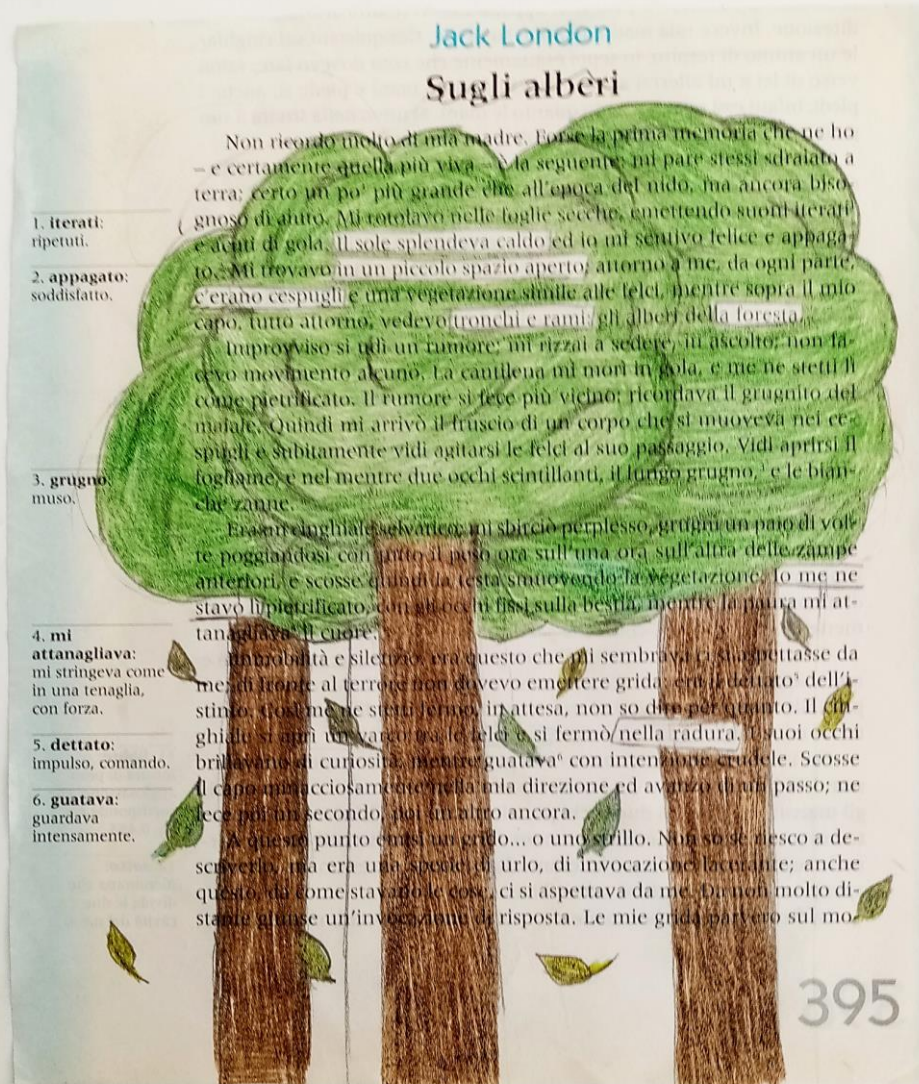 Jack London
Sugli alberi
Non ricordo molto di mia madre. Forse la prima memoria che ne ho
– e certamente quella più viva – è la seguente: mi pare stessi sdraiato a
terra; certo un po' più grande che all'epoca del nido, ma ancora biso-
gnoso di aiuto. Mi rotolavo nelle foglie secche, emettendo suoni iterati¹
e acuti di gola. Il sole splendeva caldo ed io mi sentivo felice e appaga-
to.² Mi trovavo in un piccolo spazio aperto; attorno a me, da ogni parte,
c'erano cespugli e una vegetazione simile alle felci, mentre sopra il mio
capo, tutto attorno, vedevo tronchi e rami: gli alberi della foresta.
Improvviso si udì un rumore; mi rizzai a sedere, in ascolto; non fa-
cevo movimento alcuno. La cantilena mi morì in gola, e me ne stetti lì
come pietrificato. Il rumore si fece più vicino; ricordava il grugnito del
maiale. Quindi mi arrivò il fruscio di un corpo che si muoveva nei ce-
spugli e subitamente vidi agitarsi le felci al suo passaggio. Vidi aprirsi il
fogliame, e nel mentre due occhi scintillanti, il lungo grugno,³ e le bian-
che zanne.
Era un cinghiale selvatico; mi sbirciò perplesso, grugnì un paio di vol-
te poggiandosi con tutto il peso ora sull'una ora sull'altra delle zampe
anteriori, e scosse quindi la testa smuovendo la vegetazione. Io me ne
stavo lì pietrificato, con gli occhi fissi sulla bestia, mentre la paura mi at-
tanagliava⁴ il cuore.
Immobilità e silenzio, era questo che mi sembrava ci si aspettasse da
me; di fronte al terrore non dovevo emettere grida, era il dettato⁵ dell'i-
stinto. Così me ne stetti fermo, in attesa, non so dire per quanto. Il cin-
ghiale si aprì un varco tra le felci e si fermò nella radura. I suoi occhi
brillavano di curiosità, mentre guatava⁶ con intenzione crudele. Scosse
il capo minacciosamente nella mia direzione ed avanzò di un passo; ne
fece poi un secondo, poi un altro ancora.
A questo punto emisi un grido... o uno strillo. Non so se riesco a de-
scriverlo, ma era una specie di urlo, di invocazione lacerante; anche
questo, da come stavano le cose, ci si aspettava da me. Da non molto di-
stante giunse un'invocazione di risposta. Le mie grida parvero sul mo-
1. iterati:
ripetuti.
2. appagato:
soddisfatto.
3. grugno:
muso.
4. mi
attanagliava:
mi stringeva come
in una tenaglia,
con forza.
5. dettato:
impulso, comando.
6. guatava:
guardava
intensamente.
395